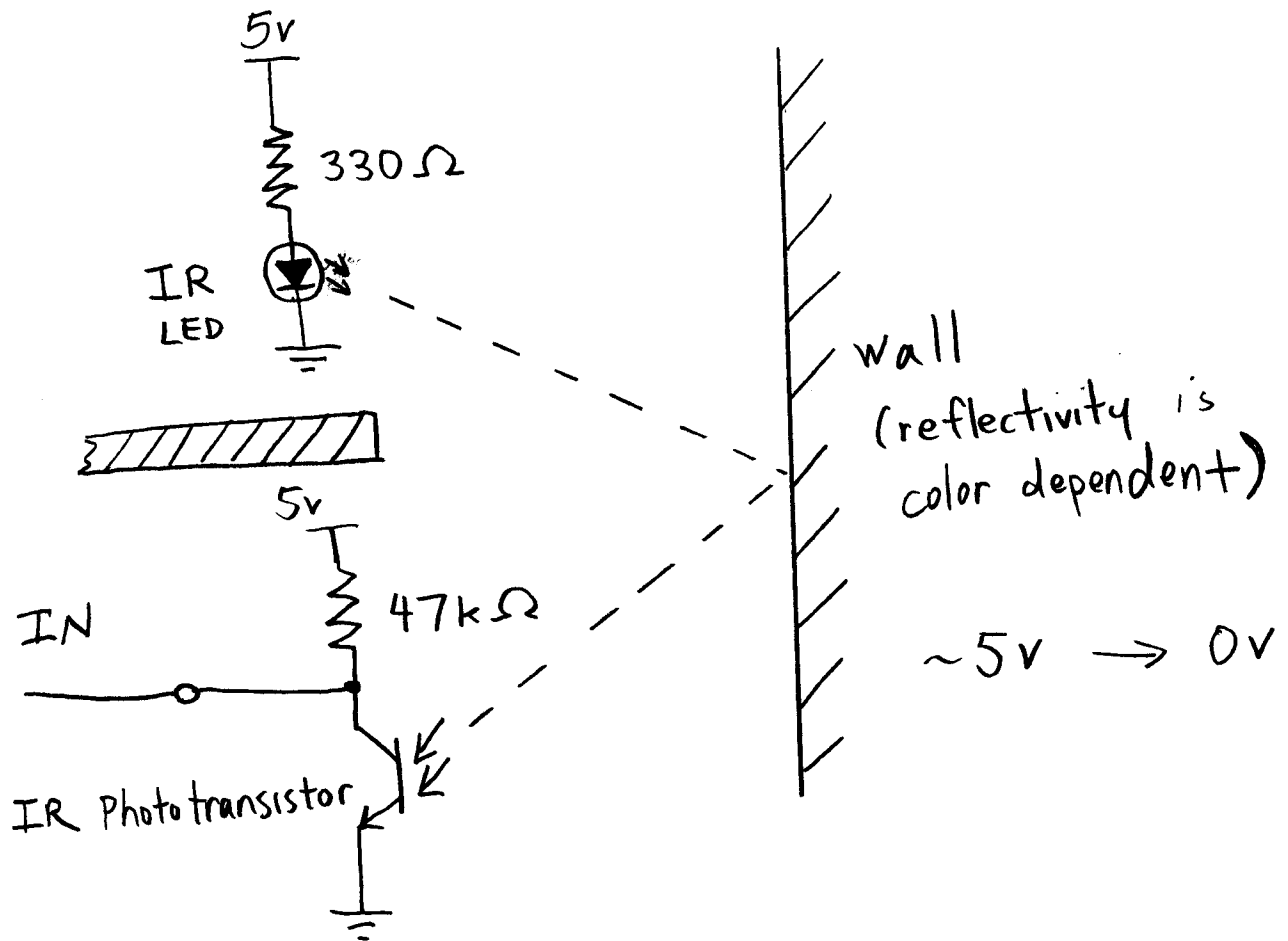 5v
330Ω
IR
LED
wall
(reflectivity is
color dependent)
5v
47kΩ
IN
~5v → 0v
IR Phototransistor